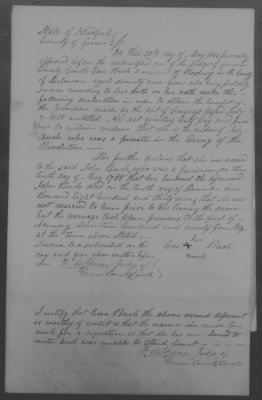 State of
County of Greene
On this 22d day of May 1844 personally
appeared before the undersigned one of the judges of Greene
County Courts Eve Bush a resident of Roxbury in the County
of Delaware aged seventy nine years who being first duly
sworn according to law doth on her oath make the
following declaration in order to obtain the benefit of
the provision made by the act of Congress passed July
7 1838 entitled An act granting half pay and pen-
sions to certain widows. That she is the widow of John
Bush who was a private in the Army of the
Revolution
She further declares that she was married
to the said John Bush on the
tenth day of May 1788 that her husband the aforesaid
John Bush died on the tenth day of
thousand eight hundred and thirty along that she was
not married to him prior to his leaving the service
but the marriage took place previous to the first of
January seventeen hundred and ninty four
at the time above stated
Sworn to & subscribed on the
day and year above written before
me
her
Eve X Bush
mark
Judge of
Greene County Courts
I certify that Eve Bush the above named deponent
is worthy of credit & that the reason she made her
mark for a signature is that she has
write and was unable to attend Court
Judge of
Greene County Courts